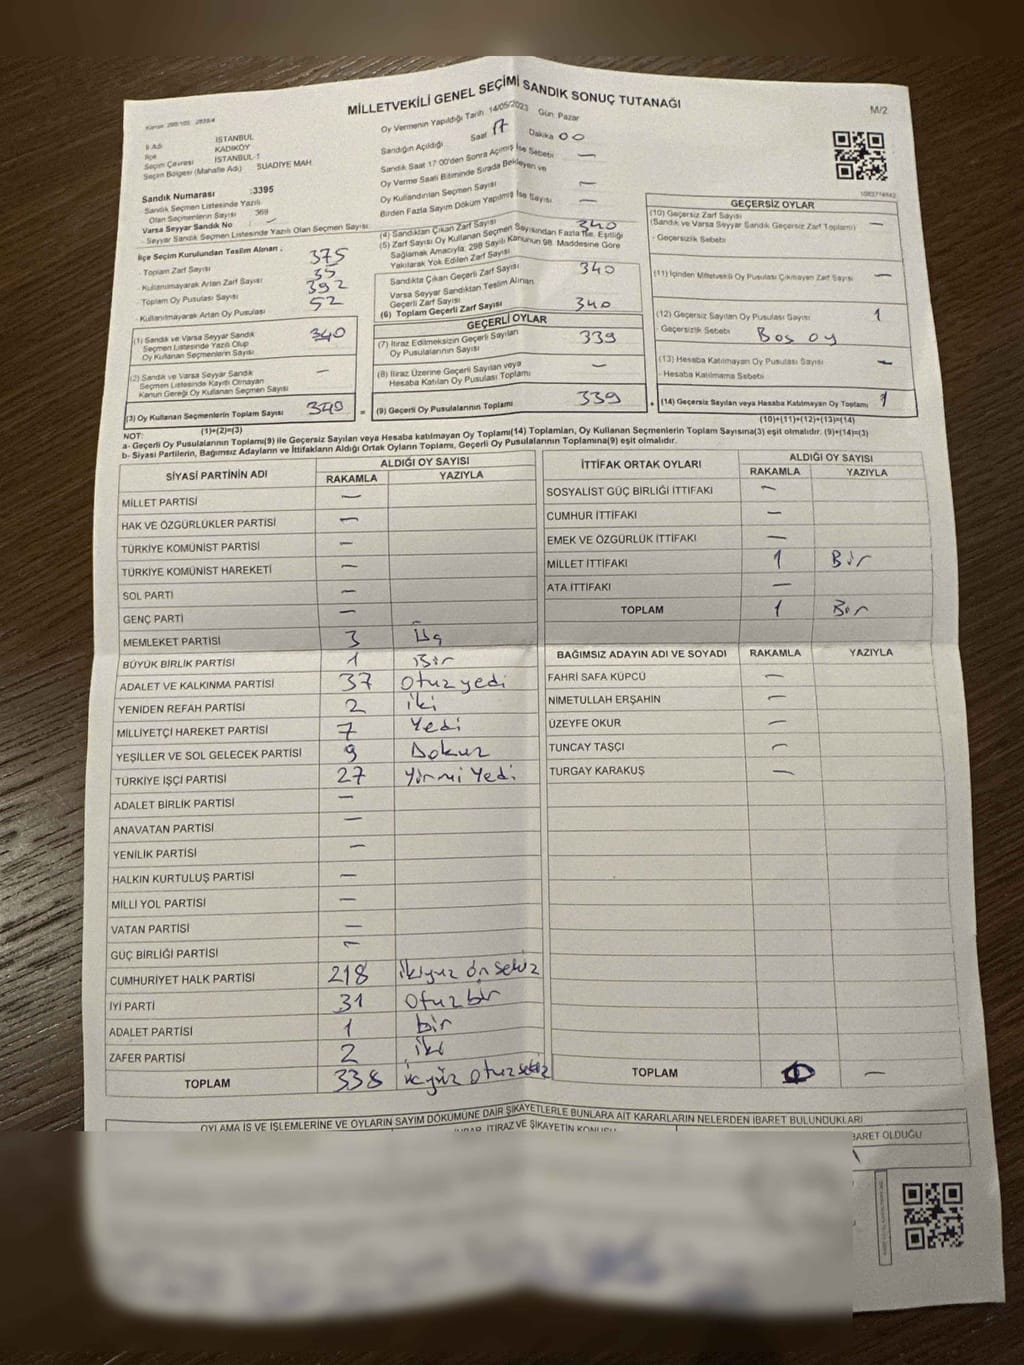 MİLLETVEKİLİ GENEL SEÇİMİ SANDIK SONUÇ TUTANAĞI
M/2
İl Adı İSTANBUL
İlçe KADIKÖY
Seçim Çevresi İSTANBUL-1
Seçim Bölgesi (Mahalle Adı) SUADİYE MAH
Oy Vermenin Yapıldığı Tarih 14/05/2023 Gün Pazar
Sandığın Açıldığı Saat 17 Dakika 00
Sandık Saat 17:00'den Sonra Açılmış İse Sebebi —
Oy Verme Saati Bitiminde Sırada Bekleyen ve
Oy Kullandırılan Seçmen Sayısı —
Birden Fazla Sayım Döküm Yapılmış İse Sayısı —
Sandık Numarası :3395
Sandık Seçmen Listesinde Yazılı
Olan Seçmenlerin Sayısı 369
Varsa Seyyar Sandık No
- Seyyar Sandık Seçmen Listesinde Yazılı Olan Seçmen Sayısı
İlçe Seçim Kurulundan Teslim Alınan :
- Toplam Zarf Sayısı 375
- Kullanılmayarak Artan Zarf Sayısı 35
- Toplam Oy Pusulası Sayısı 392
- Kullanılmayarak Artan Oy Pusulası 52
(1) Sandık ve Varsa Seyyar Sandık
Seçmen Listesinde Yazılı Olup
Oy Kullanan Seçmenlerin Sayısı 340
(2) Sandık ve Varsa Seyyar Sandık
Seçmen Listesinde Kayıtlı Olmayan
Kanun Gereği Oy Kullanan Seçmen Sayısı —
(3) Oy Kullanan Seçmenlerin Toplam Sayısı 340
(1)+(2)=(3)
(4) Sandıktan Çıkan Zarf Sayısı 340
(5) Zarf Sayısı Oy Kullanan Seçmen Sayısından Fazla İse, Eşitliği
Sağlamak Amacıyla, 298 Sayılı Kanunun 98. Maddesine Göre
Yakılarak Yok Edilen Zarf Sayısı
Sandıkta Çıkan Geçerli Zarf Sayısı 340
Varsa Seyyar Sandıktan Teslim Alınan
Geçerli Zarf Sayısı
(6) Toplam Geçerli Zarf Sayısı 340
GEÇERLİ OYLAR
(7) İtiraz Edilmeksizin Geçerli Sayılan
Oy Pusulalarının Sayısı 339
(8) İtiraz Üzerine Geçerli Sayılan veya
Hesaba Katılan Oy Pusulası Toplamı —
= (9) Geçerli Oy Pusulalarının Toplamı 339
GEÇERSİZ OYLAR
(10) Geçersiz Zarf Sayısı
(Sandık ve Varsa Seyyar Sandık Geçersiz Zarf Toplamı) —
- Geçersizlik Sebebi
(11) İçinden Milletvekili Oy Pusulası Çıkmayan Zarf Sayısı —
(12) Geçersiz Sayılan Oy Pusulası Sayısı 1
- Geçersizlik Sebebi Boş oy
(13) Hesaba Katılmayan Oy Pusulası Sayısı —
- Hesaba Katılmama Sebebi
+ (14) Geçersiz Sayılan veya Hesaba Katılmayan Oy Toplamı 1
(10)+(11)+(12)+(13)=(14)
NOT:
a- Geçerli Oy Pusulalarının Toplamı(9) ile Geçersiz Sayılan veya Hesaba katılmayan Oy Toplamı(14) Toplamları, Oy Kullanan Seçmenlerin Toplam Sayısına(3) eşit olmalıdır. (9)+(14)=(3)
b- Siyasi Partilerin, Bağımsız Adayların ve İttifakların Aldığı Ortak Oyların Toplamı, Geçerli Oy Pusulalarının Toplamına(9) eşit olmalıdır.
SİYASİ PARTİNİN ADI ALDIĞI OY SAYISI
RAKAMLA YAZIYLA
MİLLET PARTİSİ —
HAK VE ÖZGÜRLÜKLER PARTİSİ —
TÜRKİYE KOMÜNİST PARTİSİ —
TÜRKİYE KOMÜNİST HAREKETİ —
SOL PARTİ —
GENÇ PARTİ —
MEMLEKET PARTİSİ 3 Üç
BÜYÜK BİRLİK PARTİSİ 1 Bir
ADALET VE KALKINMA PARTİSİ 37 Otuz yedi
YENİDEN REFAH PARTİSİ 2 iki
MİLLİYETÇİ HAREKET PARTİSİ 7 Yedi
YEŞİLLER VE SOL GELECEK PARTİSİ 9 Dokuz
TÜRKİYE İŞÇİ PARTİSİ 27 Yirmi Yedi
ADALET BİRLİK PARTİSİ —
ANAVATAN PARTİSİ —
YENİLİK PARTİSİ —
HALKIN KURTULUŞ PARTİSİ —
MİLLİ YOL PARTİSİ —
VATAN PARTİSİ —
GÜÇ BİRLİĞİ PARTİSİ —
CUMHURİYET HALK PARTİSİ 218 ikiyüz on sekiz
İYİ PARTİ 31 Otuz bir
ADALET PARTİSİ 1 bir
ZAFER PARTİSİ 2 iki
TOPLAM 338 üçyüz otuz sekiz
İTTİFAK ORTAK OYLARI ALDIĞI OY SAYISI
RAKAMLA YAZIYLA
SOSYALİST GÜÇ BİRLİĞİ İTTİFAKI —
CUMHUR İTTİFAKI —
EMEK VE ÖZGÜRLÜK İTTİFAKI —
MİLLET İTTİFAKI 1 Bir
ATA İTTİFAKI —
TOPLAM 1 Bir
BAĞIMSIZ ADAYIN ADI VE SOYADI RAKAMLA YAZIYLA
FAHRİ SAFA KÜPCÜ —
NİMETULLAH ERŞAHİN —
ÜZEYFE OKUR —
TUNCAY TAŞÇI —
TURGAY KARAKUŞ —
TOPLAM —
OYLAMA İŞ VE İŞLEMLERİNE VE OYLARIN SAYIM DÖKÜMÜNE DAİR ŞİKAYETLERLE BUNLARA AİT KARARLARIN NELERDEN İBARET BULUNDUKLARI
İTİRAZ VE ŞİKAYETİN KONUSU
İBARET OLDUĞU